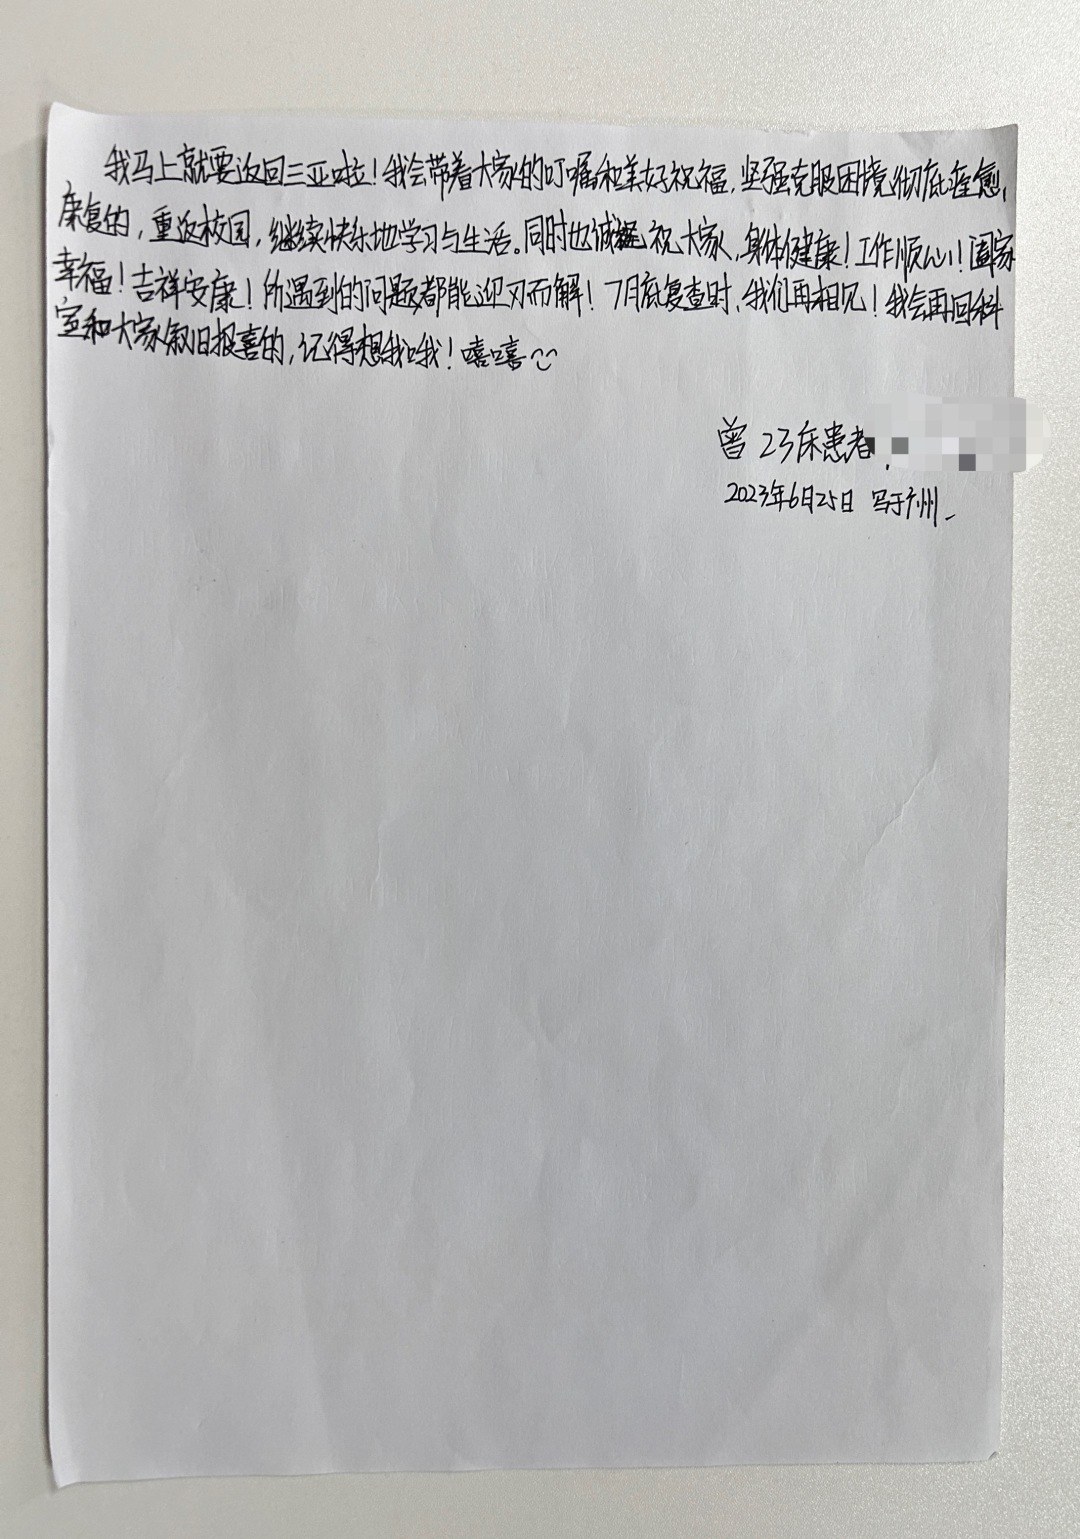 我马上就要返回三亚啦！我会带着大家的叮嘱和美好祝福，坚强克服困境，彻底痊愈、
康复的，重返校园，继续快乐地学习与生活。同时也诚挚祝大家，身体健康！工作顺心！阖家
幸福！吉祥安康！所遇到的问题都能迎刃而解！7月底复查时，我们再相见！我会再回科
室和大家叙旧报喜的，记得想我哦！嘻嘻
曾23床患者
2023年6月25日 写于广州